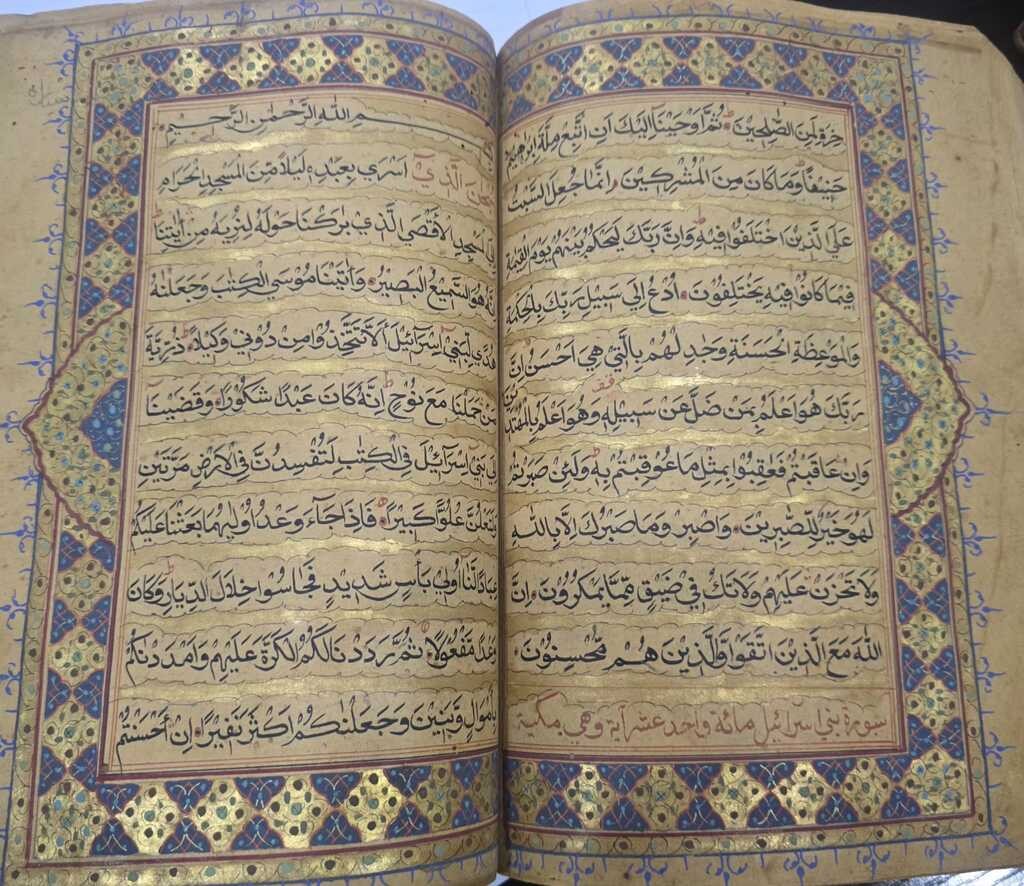 خِرَةِ لَمِنَ الصّٰلِحِيْنَ ثُمَّ اَوْحَيْنَا اِلَيْكَ اَنِ اتَّبِعْ مِلَّةَ اِبْرٰهِيْمَ
حَنِيْفًا وَمَا كَانَ مِنَ الْمُشْرِكِيْنَ اِنَّمَا جُعِلَ السَّبْتُ
عَلَى الَّذِيْنَ اخْتَلَفُوْا فِيْهِ وَاِنَّ رَبَّكَ لَيَحْكُمُ بَيْنَهُمْ يَوْمَ الْقِيٰمَةِ
فِيْمَا كَانُوْا فِيْهِ يَخْتَلِفُوْنَ اُدْعُ اِلٰى سَبِيْلِ رَبِّكَ بِالْحِكْمَةِ
وَالْمَوْعِظَةِ الْحَسَنَةِ وَجٰدِلْهُمْ بِالَّتِيْ هِيَ اَحْسَنُ اِنَّ
رَبَّكَ هُوَ اَعْلَمُ بِمَنْ ضَلَّ عَنْ سَبِيْلِهٖ وَهُوَ اَعْلَمُ بِالْمُهْتَدِيْنَ
وَاِنْ عَاقَبْتُمْ فَعَاقِبُوْا بِمِثْلِ مَا عُوْقِبْتُمْ بِهٖ وَلَئِنْ صَبَرْتُمْ
لَهُوَ خَيْرٌ لِّلصّٰبِرِيْنَ وَاصْبِرْ وَمَا صَبْرُكَ اِلَّا بِاللّٰهِ
وَلَا تَحْزَنْ عَلَيْهِمْ وَلَا تَكُ فِيْ ضَيْقٍ مِّمَّا يَمْكُرُوْنَ اِنَّ
اللّٰهَ مَعَ الَّذِيْنَ اتَّقَوْا وَّالَّذِيْنَ هُمْ مُّحْسِنُوْنَ
سورة بني اسرائيل مائة واحد عشر آية وهي مكية
بِسْمِ اللّٰهِ الرَّحْمٰنِ الرَّحِيْمِ
سُبْحٰنَ الَّذِيْ اَسْرٰى بِعَبْدِهٖ لَيْلًا مِّنَ الْمَسْجِدِ الْحَرَامِ
اِلَى الْمَسْجِدِ الْاَقْصَى الَّذِيْ بٰرَكْنَا حَوْلَهٗ لِنُرِيَهٗ مِنْ اٰيٰتِنَا
اِنَّهٗ هُوَ السَّمِيْعُ الْبَصِيْرُ وَاٰتَيْنَا مُوْسَى الْكِتٰبَ وَجَعَلْنٰهُ
هُدًى لِّبَنِيْ اِسْرَآئِيْلَ اَلَّا تَتَّخِذُوْا مِنْ دُوْنِيْ وَكِيْلًا ذُرِّيَّةَ
مَنْ حَمَلْنَا مَعَ نُوْحٍ اِنَّهٗ كَانَ عَبْدًا شَكُوْرًا وَقَضَيْنَا
اِلٰى بَنِيْ اِسْرَآئِيْلَ فِي الْكِتٰبِ لَتُفْسِدُنَّ فِي الْاَرْضِ مَرَّتَيْنِ
وَلَتَعْلُنَّ عُلُوًّا كَبِيْرًا فَاِذَا جَآءَ وَعْدُ اُوْلٰىهُمَا بَعَثْنَا عَلَيْكُمْ
عِبَادًا لَّنَا اُولِيْ بَأْسٍ شَدِيْدٍ فَجَاسُوْا خِلَالَ الدِّيَارِ وَكَانَ
وَعْدًا مَّفْعُوْلًا ثُمَّ رَدَدْنَا لَكُمُ الْكَرَّةَ عَلَيْهِمْ وَاَمْدَدْنٰكُمْ
بِاَمْوَالٍ وَّبَنِيْنَ وَجَعَلْنٰكُمْ اَكْثَرَ نَفِيْرًا اِنْ اَحْسَنْتُمْ